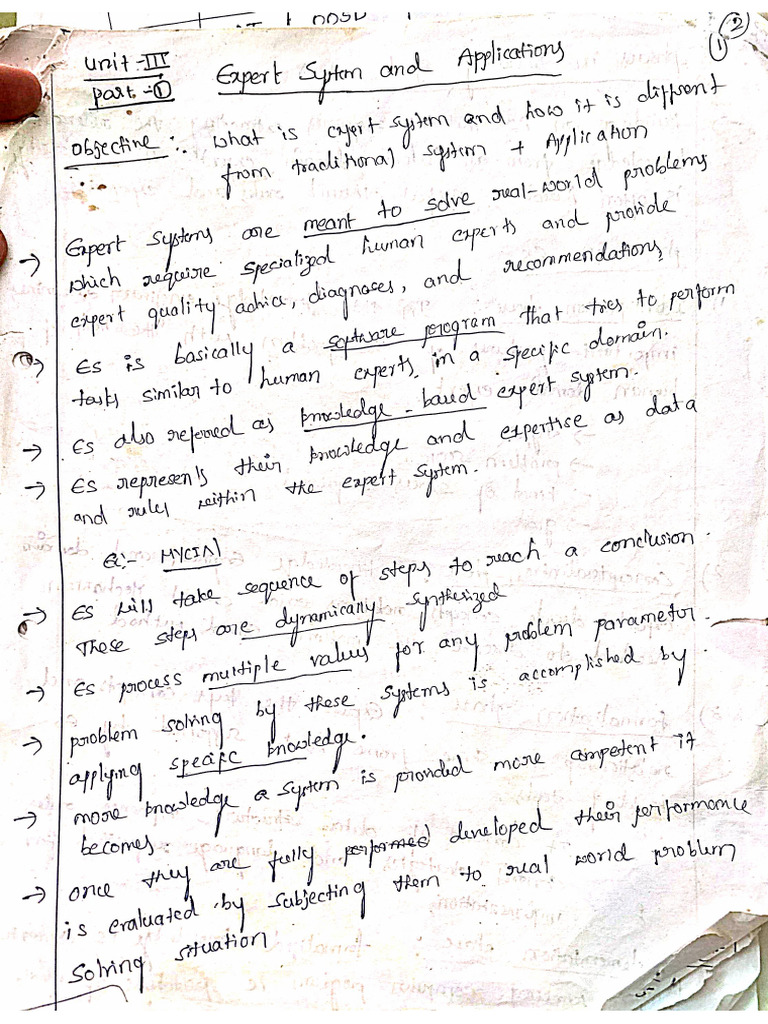 ② ①
Unit-III
Part-① Expert System and Applications
Objective:- What is expert system and how it is diffrent
from traditional system + Application
→ Expert Systems are meant to solve real-world problems
which require specialized human experts and provide
expert quality advice, diagnoses, and recommendations
→ ES is basically a software program that tries to perform
tasks similar to human experts in a specific domain.
→ ES also referred as knowledge-based expert system.
→ ES represents their knowledge and expertise as data
and rules within the expert system.
Ex:- MYCIN
→ ES will take sequence of steps to reach a conclusion.
These steps are dynamically synthesized
→ ES process multiple values for any problem parameter.
→ problem solving by these systems is accomplished by.
applying specific knowledge.
→ more knowledge a system is provided more competent it
becomes.
→ once they are fully performed developed their performance
is evaluated by subjecting them to real world problem
solving situation